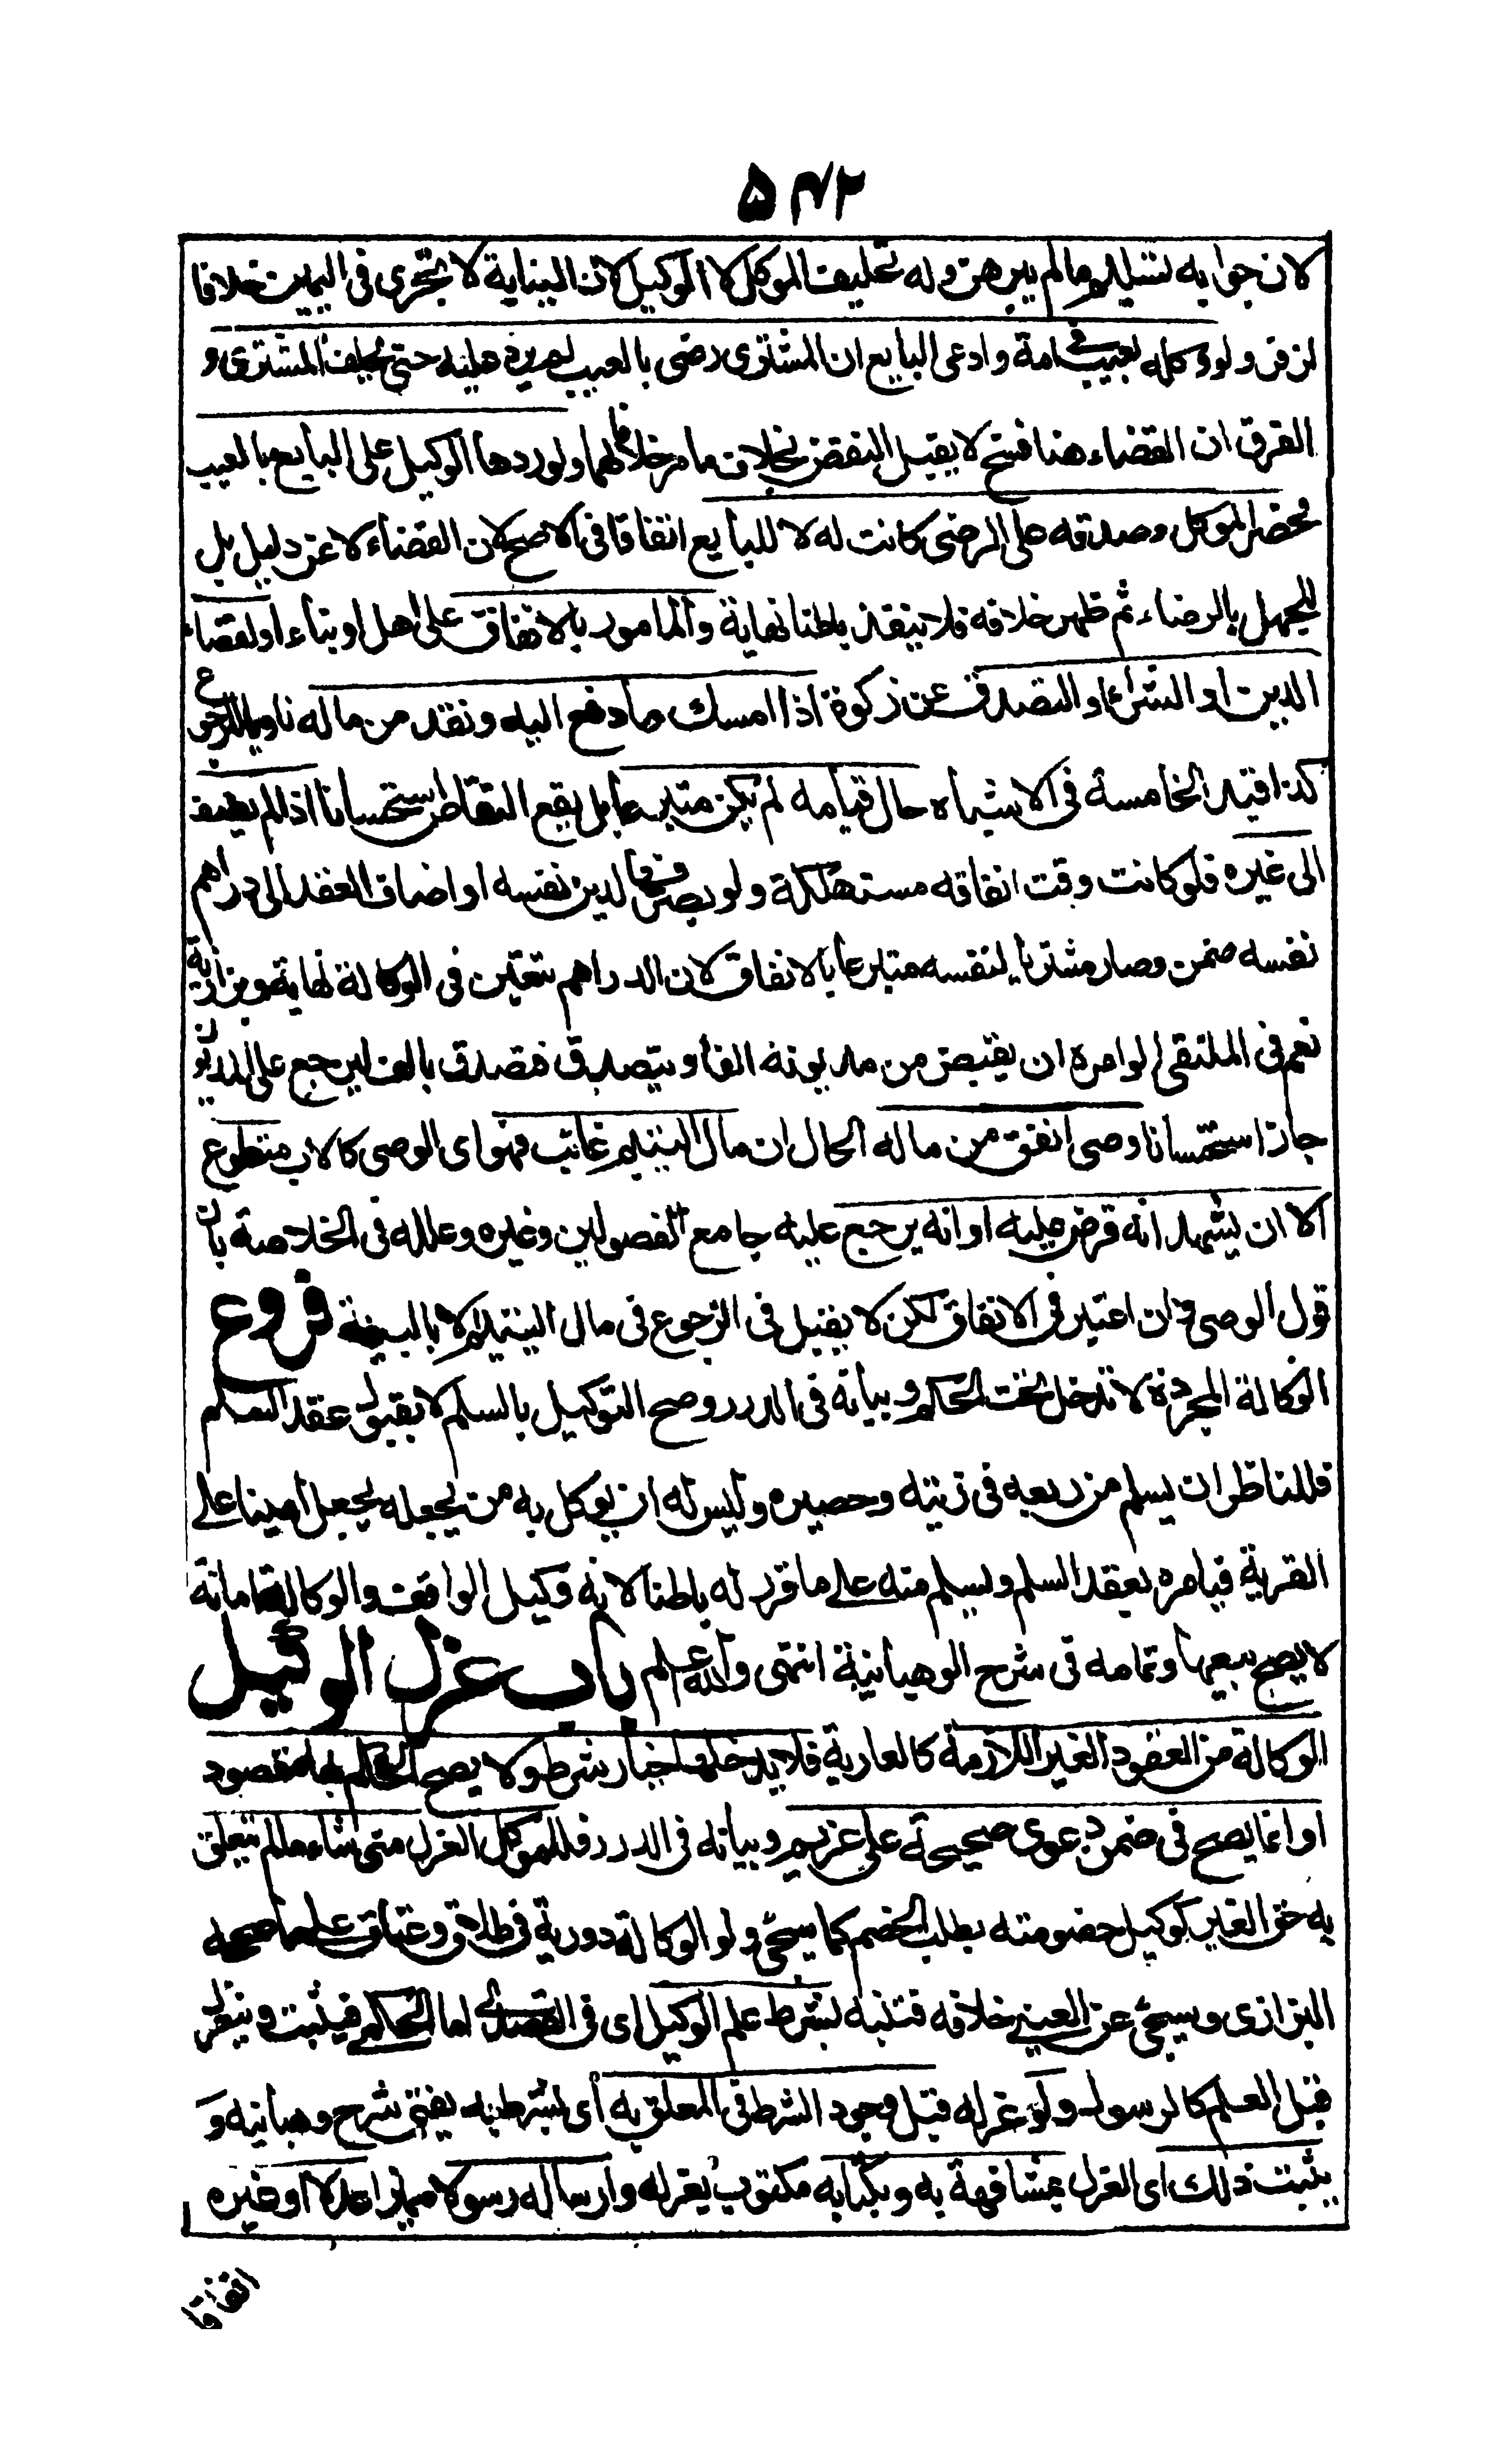 ۵۴۲
لان جوابه تسليم مالم يبرهن وله تحليف الموكل لا الوكيل لان النيابة لا تجرى فى اليمين خلافا
لزفر ولو وكله بعيب فى امة وادعى البايع ان المشترى رضى بالعيب لم يرد عليه حتى يحلف المشترى و
الفرق ان القضاء هنا فسخ لا يقبل النقض بخلاف ما مر خلافا لهما ولو ردها الوكيل على البايع بالعيب
فحضر الموكل وصدقه على الرضى كانت له لا للبايع اتفاقا فى الاصح لان القضاء لا عن دليل بل
للجهل بالرضاء ثم ظهر خلافه فلا ينفذ باطنا نهاية والمامور بالانفاق على اهل او بناء او لقضاء
الدين او الشراء او التصدق عن زكوة اذا امسك ما دفع اليه ونقد من ماله ناويا للرجوع
كذا قيد الخامسة فى الاشباه حال قيامه لم يكن متبرعا بل يقع التقاص استحسانا اذا لم يضف
الى غيره فلو كانت وقت انفاقه مستهلكة ولو بصرفها لدين نفسه او اضاف العقد الى دراهم
نفسه ضمن وصار مشتريا لنفسه متبرعا بالانفاق لان الدراهم تتعين فى الوكالة نهاية وبزازية
نعم فى الملتقى لو امره ان يقبض من مديونه الفا ويتصدق فتصدق بالف ليرجع على المديون
جاز استحسانا وصى انفق من ماله الحال ان مال اليتيم غائب فهو اى الوصى كالاب متطوع
الا ان يشهد انه قرض عليه او انه يرجع عليه جامع الفصولين وغيره وعلله فى الخلاصة بان
قول الوصى وان اعتبر فى الانفاق لكن لا يقبل فى الرجوع فى مال اليتيم الا بالبينة فروع
الوكالة المجردة لا تدخل تحت الحكم وبيانه فى الدرر وصح التوكيل بالسلم لا بقبول عقد السلم
فللناظر ان يسلم من ريعه فى زيته وحصيره وليس له ان يوكل به من يجعله يجعل امينا على
القرية فيامره بعقد السلم ويسلم منه على ما قرر له باطنا لانه وكيل الواقف والوكالة امانة
لا يصح بيعها وتمامه فى شرح الوهبانية انتهى والله اعلم باب عزل الوكيل
الوكالة من العقود الغير اللازمة كالعارية فلا يدخلها خيار شرط ولا يصح الحكم بها مقصود
او انما يصح فى ضمن دعوى صحيحة على غريم وبيانه فى الدرر فللموكل العزل متى شاء مالم يتعلق
به حق الغير كوكيل خصومته بطلب الخصم كما سيجئ ولو الوكالة دورية فى طلاق وعتاق على ما صححه
البزازى وسيجئ عن العينى خلافه فتنبه بشرط علم الوكيل اى فى القصدى اما الحكمى فيثبت وينعزل
قبل العلم كالرسول ولو عزله قبل وجود الشرط فى المعلق به اى بشرط به يفتى شرح وهبانيه و
يثبت ذلك اى العزل بمشافهة به وبكتابه مكتوب بعزله وارساله رسولا مميزا عدلا او غيره
اتفاقا